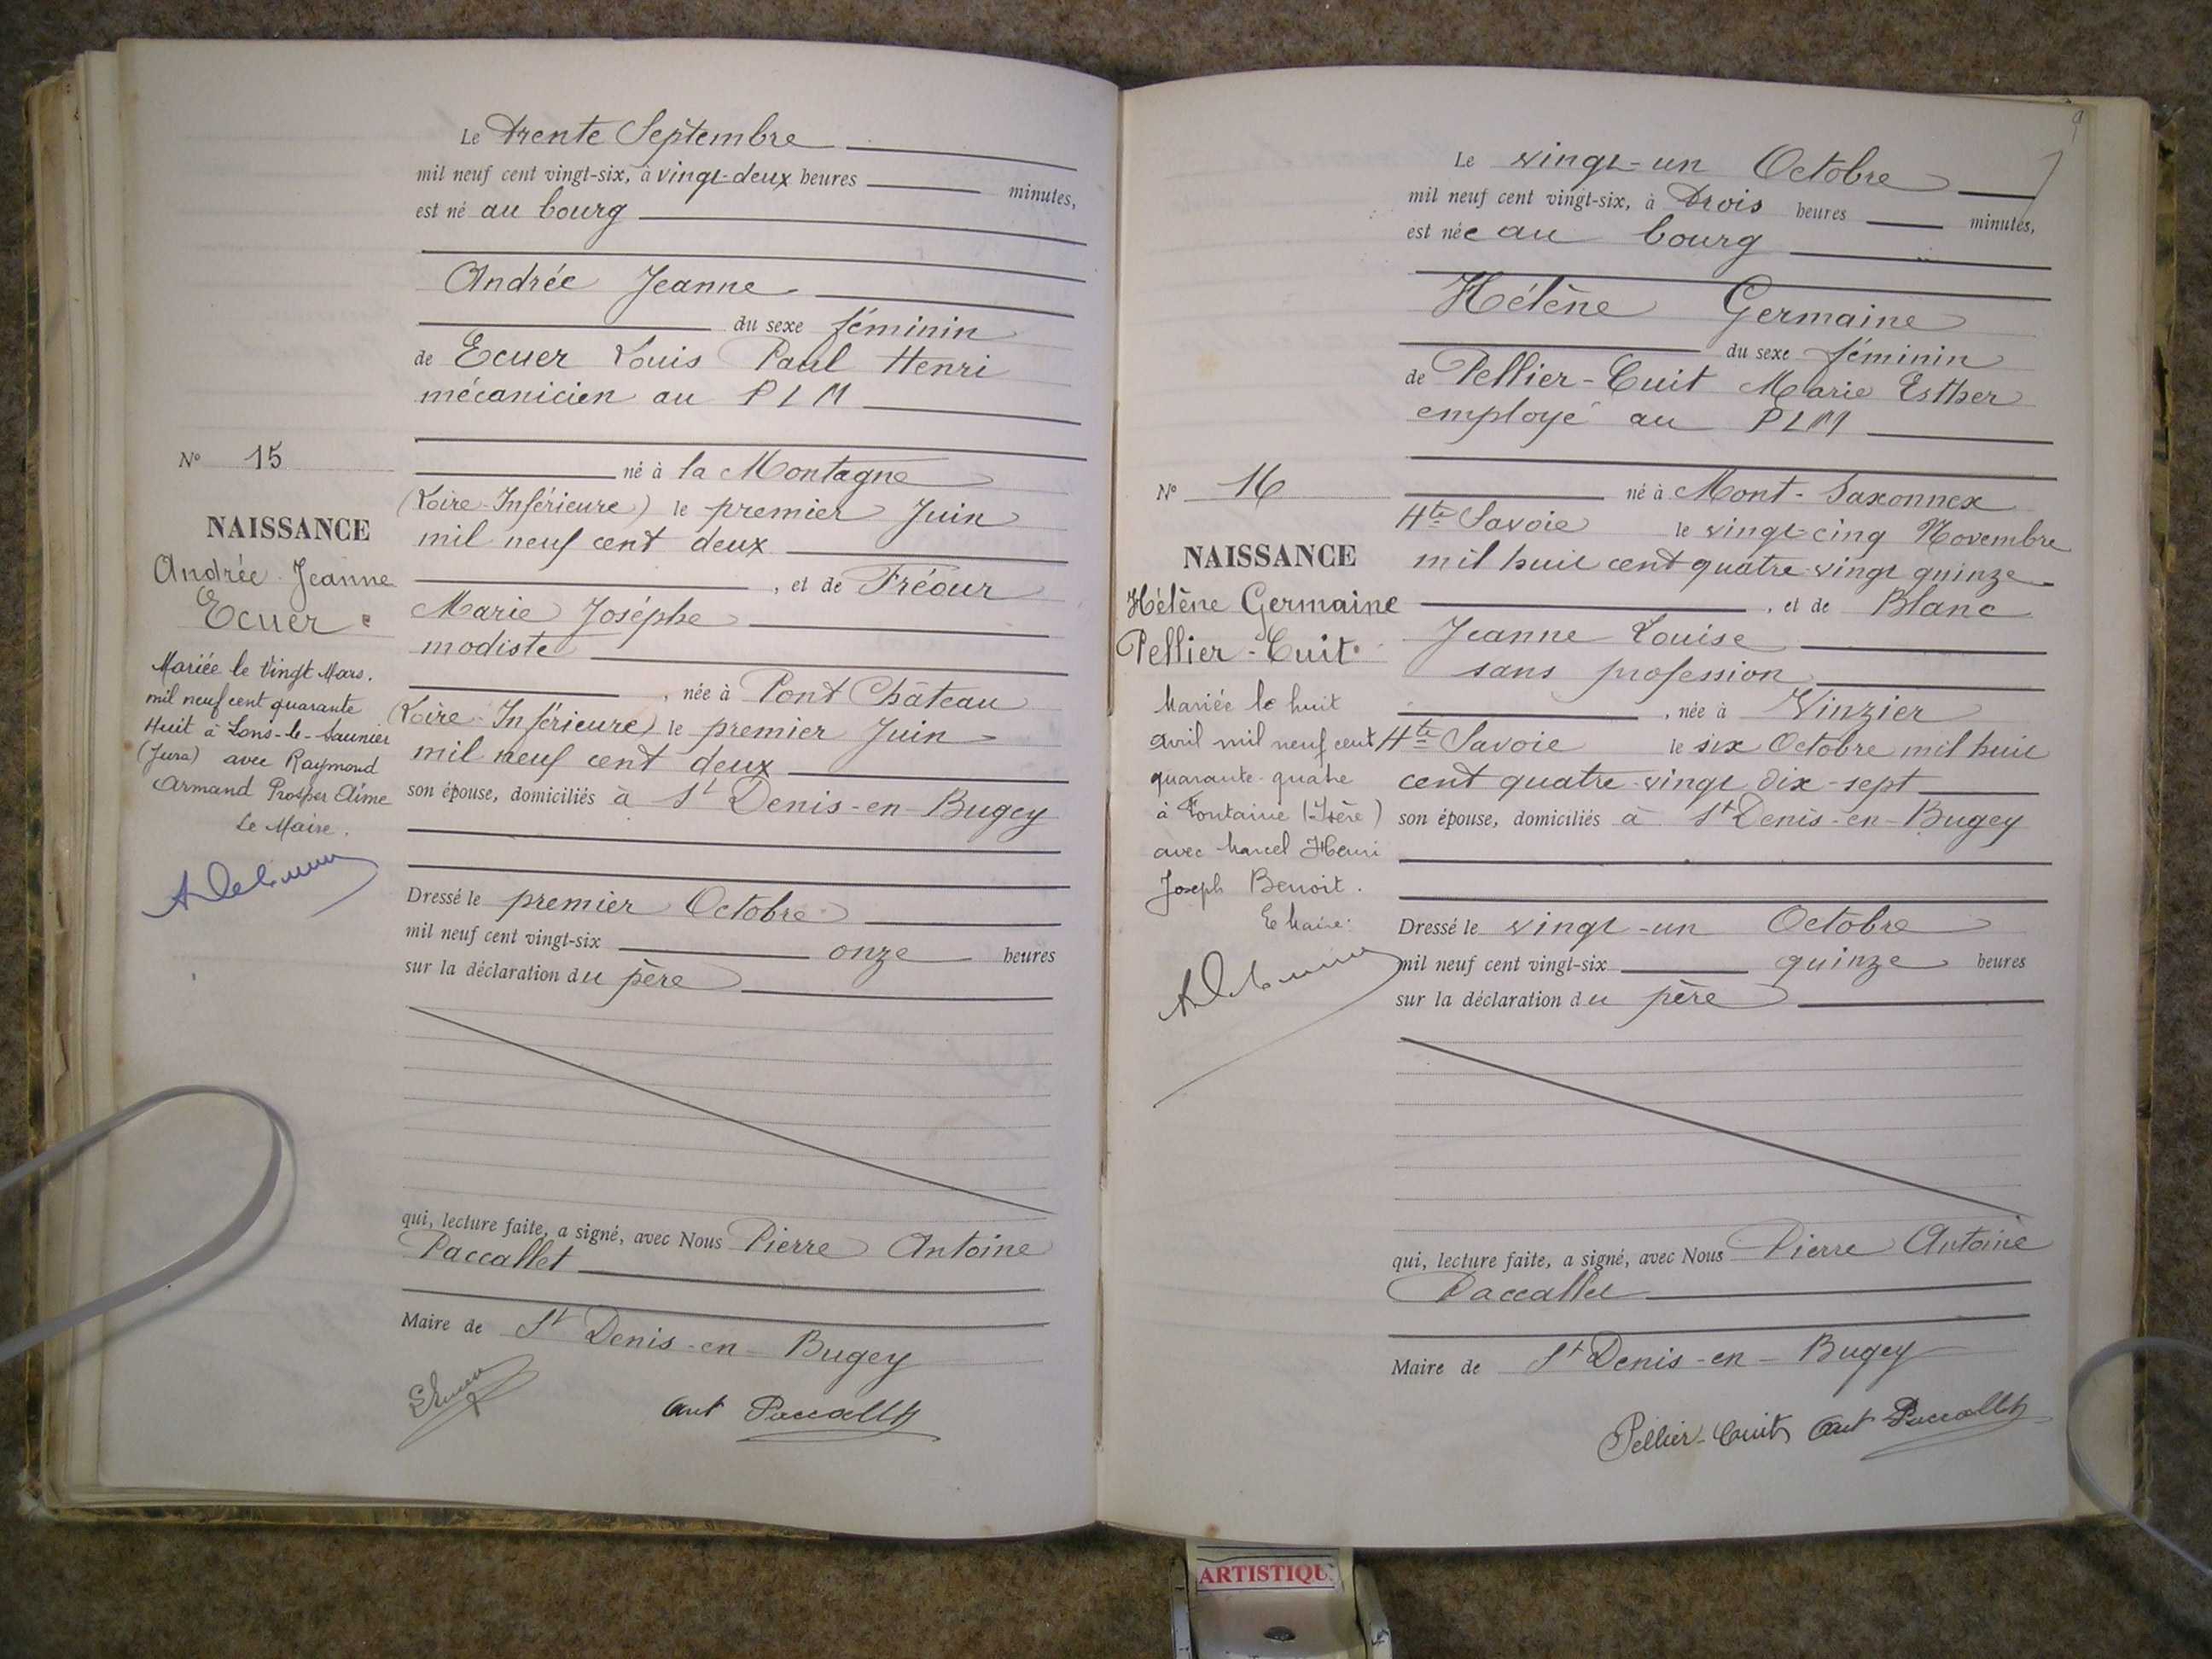 Le trente Septembre
mil neuf cent vingt-six, à vingt-deux heures minutes,
est né au bourg
Andrée Jeanne
du sexe féminin
de Ecuer Louis Paul Henri
mécanicien au PLM
né à la Montagne
(Loire-Inférieure) le premier Juin
mil neuf cent deux
, et de Fréour
Marie Joséphe
modiste
, née à Pont Château
(Loire-Inférieure) le premier Juin
mil neuf cent deux
son épouse, domiciliés à St Denis-en-Bugey
Dressé le premier Octobre
mil neuf cent vingt-six onze heures
sur la déclaration du père
qui, lecture faite, a signé, avec Nous Pierre Antoine
Paccallet
Maire de St Denis-en-Bugey
Ant Paccallet
No 15
NAISSANCE
Andrée Jeanne
Ecuer
Mariée le Vingt Mars.
mil neuf cent quarante
Huit à Lons-le-Saunier
(Jura) avec Raymond
Armand Prosper Aimé
Le Maire.
9
Le vingt-un Octobre
mil neuf cent vingt-six, à trois heures minutes,
est née au bourg
Hélène Germaine
du sexe féminin
de Pellier-Cuit Marie Esther
employé au PLM
né à Mont-Saxonnex
Hte Savoie le vingt-cinq Novembre
mil huit cent quatre-vingt quinze
, et de Blanc
Jeanne Louise
sans profession
, née à Vinzier
Hte Savoie le six Octobre mil huit
cent quatre-vingt dix-sept
son épouse, domiciliés à St Denis-en-Bugey
Dressé le vingt-un Octobre
mil neuf cent vingt-six quinze heures
sur la déclaration du père
qui, lecture faite, a signé, avec Nous Pierre Antoine
Paccallet
Maire de St Denis-en-Bugey
Pellier-Cuit Ant Paccallet
No 16
NAISSANCE
Hélène Germaine
Pellier-Cuit
Mariée le huit
avril mil neuf cent
quarante-quatre
à Fontaine (Isère)
avec Marcel Henri
Joseph Benoit.
Le Maire:
ARTISTIQU